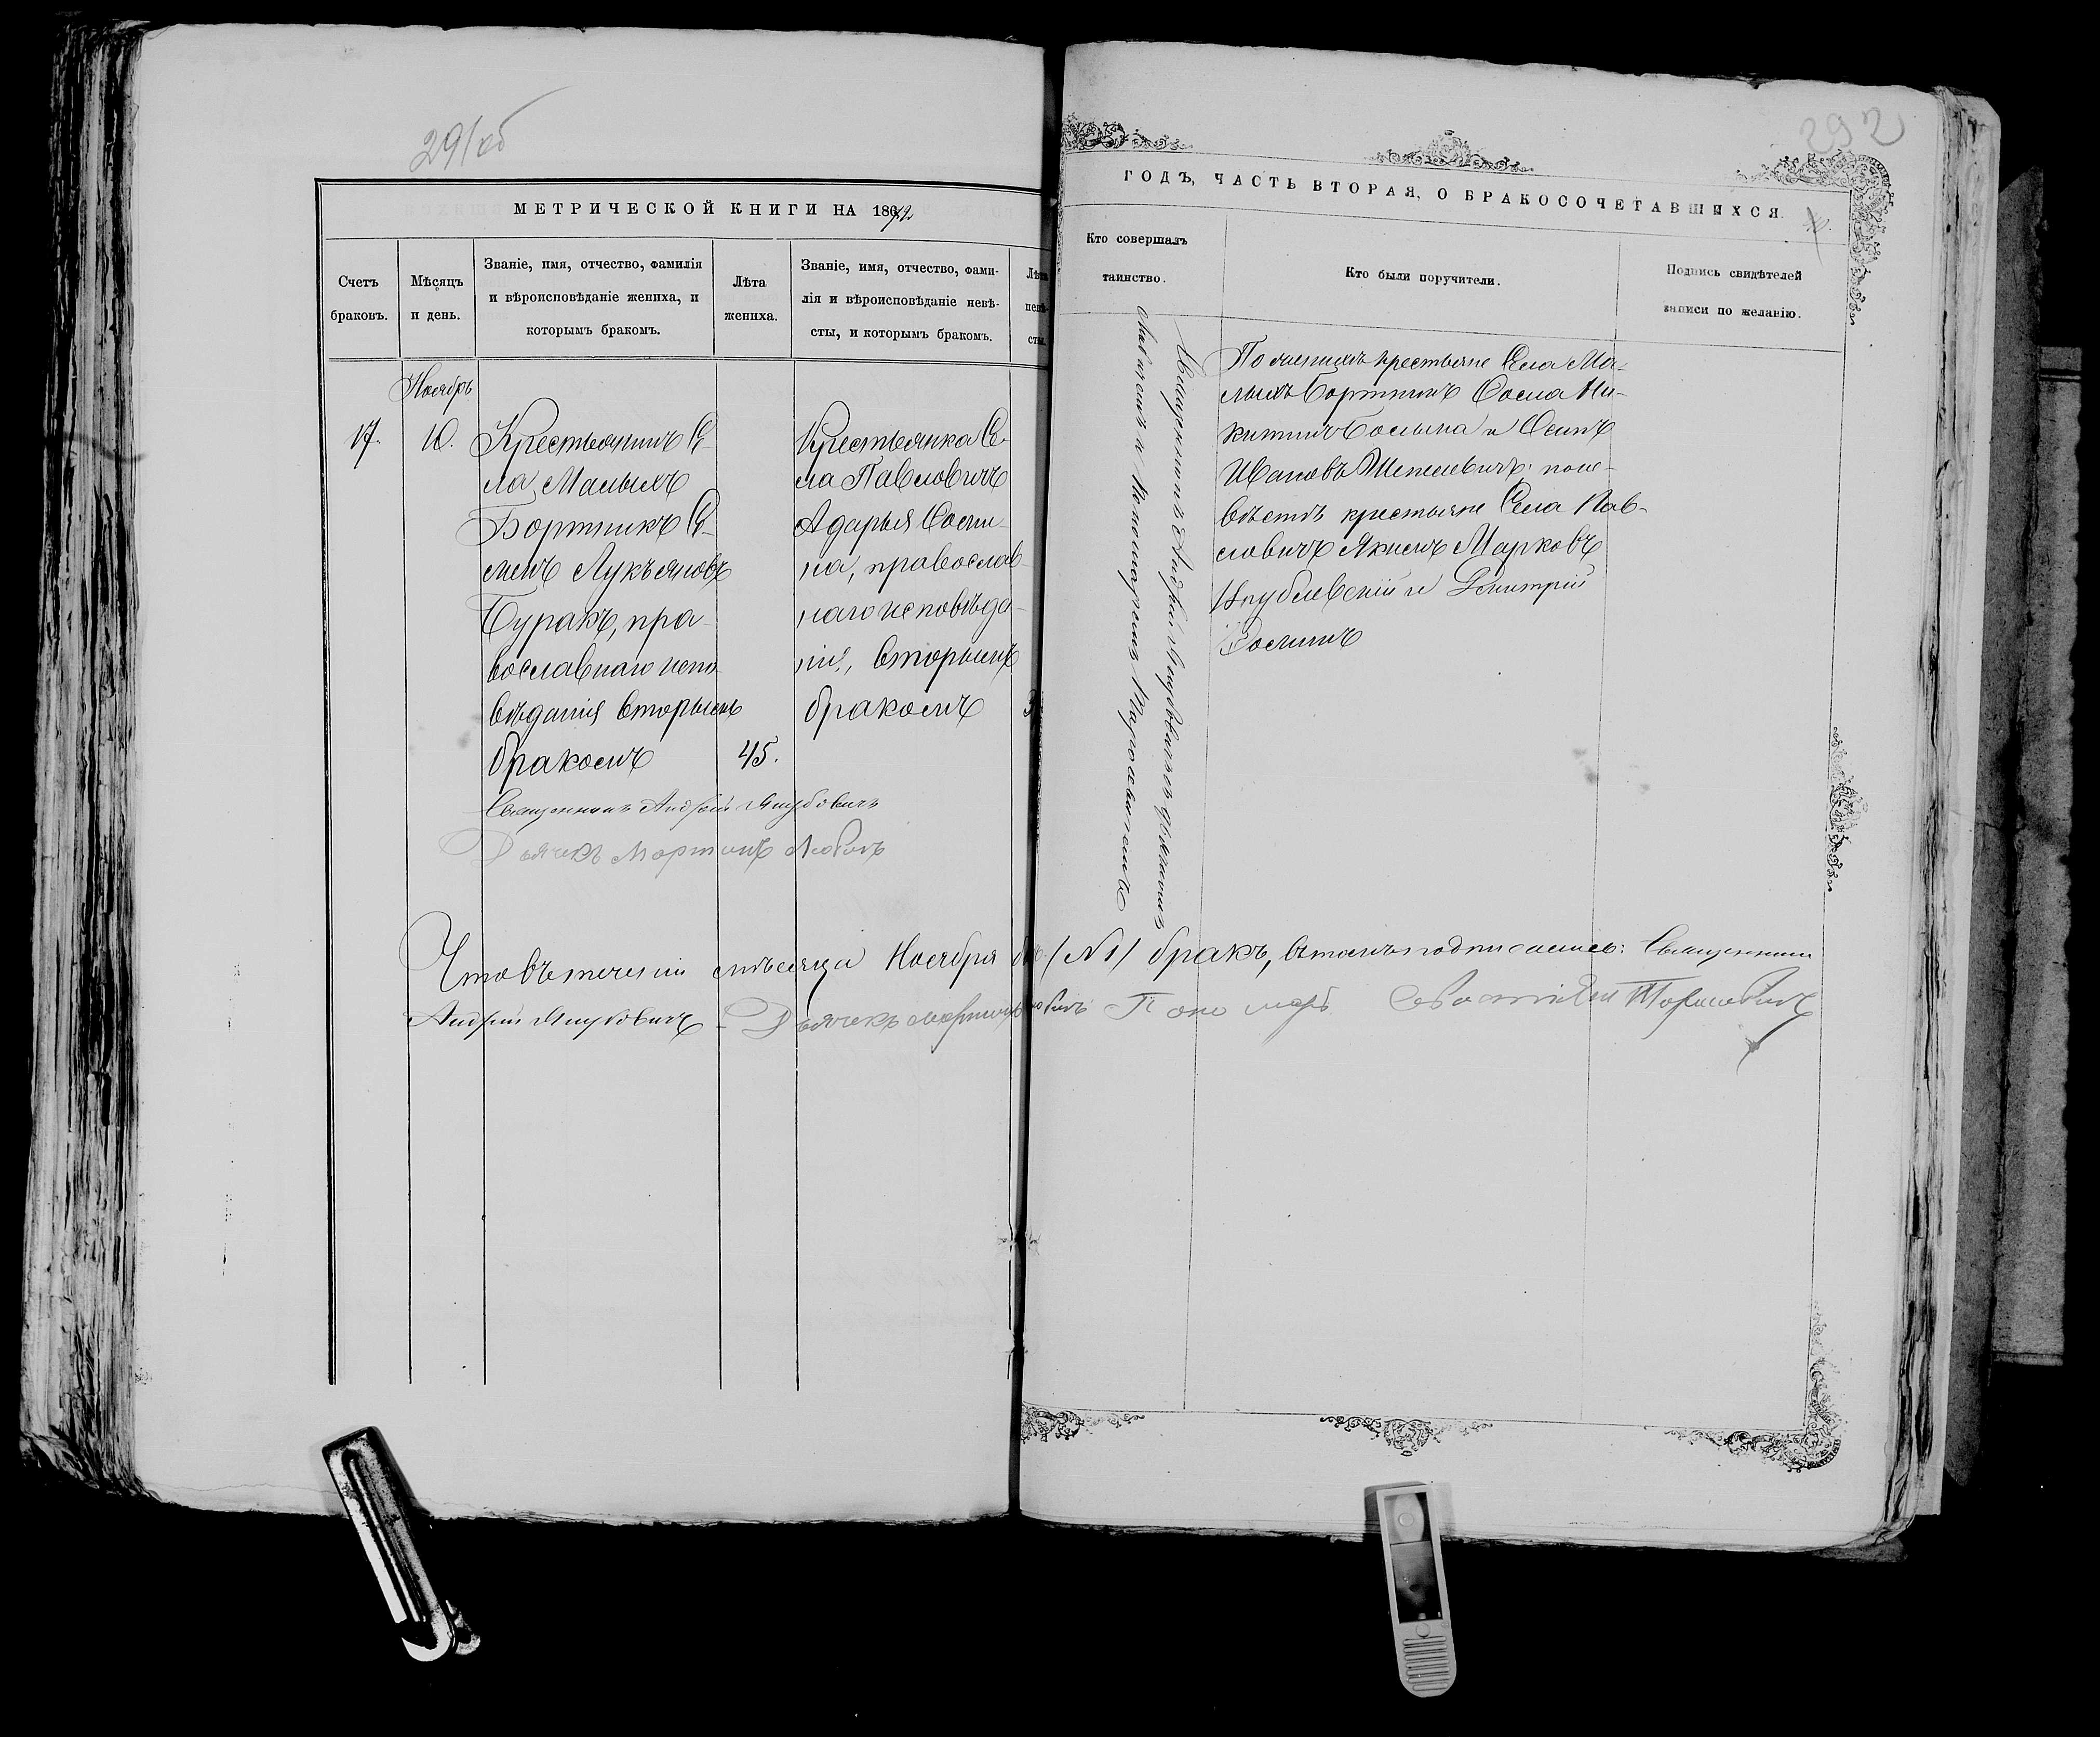 291об
292
МЕТРИЧЕСКОЙ КНИГИ НА 1872
ГОДЪ, ЧАСТЬ ВТОРАЯ, О БРАКОСОЧЕТАВШИХСЯ.
Счетъ
браковъ.
Мѣсяцъ
и день.
Званіе, имя, отчество, фамилія
и вѣроисповѣданіе жениха, и
которымъ бракомъ.
Лѣта
жениха.
Званіе, имя, отчество, фами-
лія и вѣроисповѣданіе невѣ-
сты, и которымъ бракомъ.
Лѣта
невѣ-
сты.
Кто совершалъ
таинство.
Кто были поручители.
Подпись свидѣтелей
записи по желанію.
Ноябрь
17.
10.
Крестьянинъ Се-
ла Малыхъ
Бортникъ Се-
менъ Лукьяновъ
Буракъ, пра-
вославнаго испо-
вѣданія вторымъ
бракомъ
45.
Крестьянка Се-
ла Павловичъ
Адарья
на, православ-
наго исповѣда-
нія, вторымъ
бракомъ
Священникъ Андрей Якубовичъ съ дьячкомъ
и пономаремъ
По женихѣ крестьяне Села Ма-
лыхъ Бортникъ Сосна Ни-
китинъ и Осипъ
Ивановъ по не-
вѣстѣ крестьяне Села Пав-
ловичъ Якимъ Марковъ
и Димитрій
Священникъ Андрей Якубовичъ
Дьячекъ Мартинъ
Что въ теченіи мѣсяца Ноября (№1) бракъ, въ томъ подписались: Священникъ
Андрей Якубовичъ Дьячекъ Мартинъ Пономарь